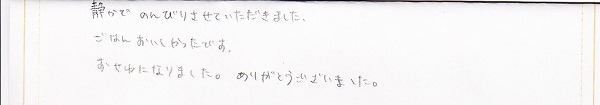 静かで のんびりさせていただきました.
ごはん おいしかったです.
おせわになりました。 ありがとうございました。